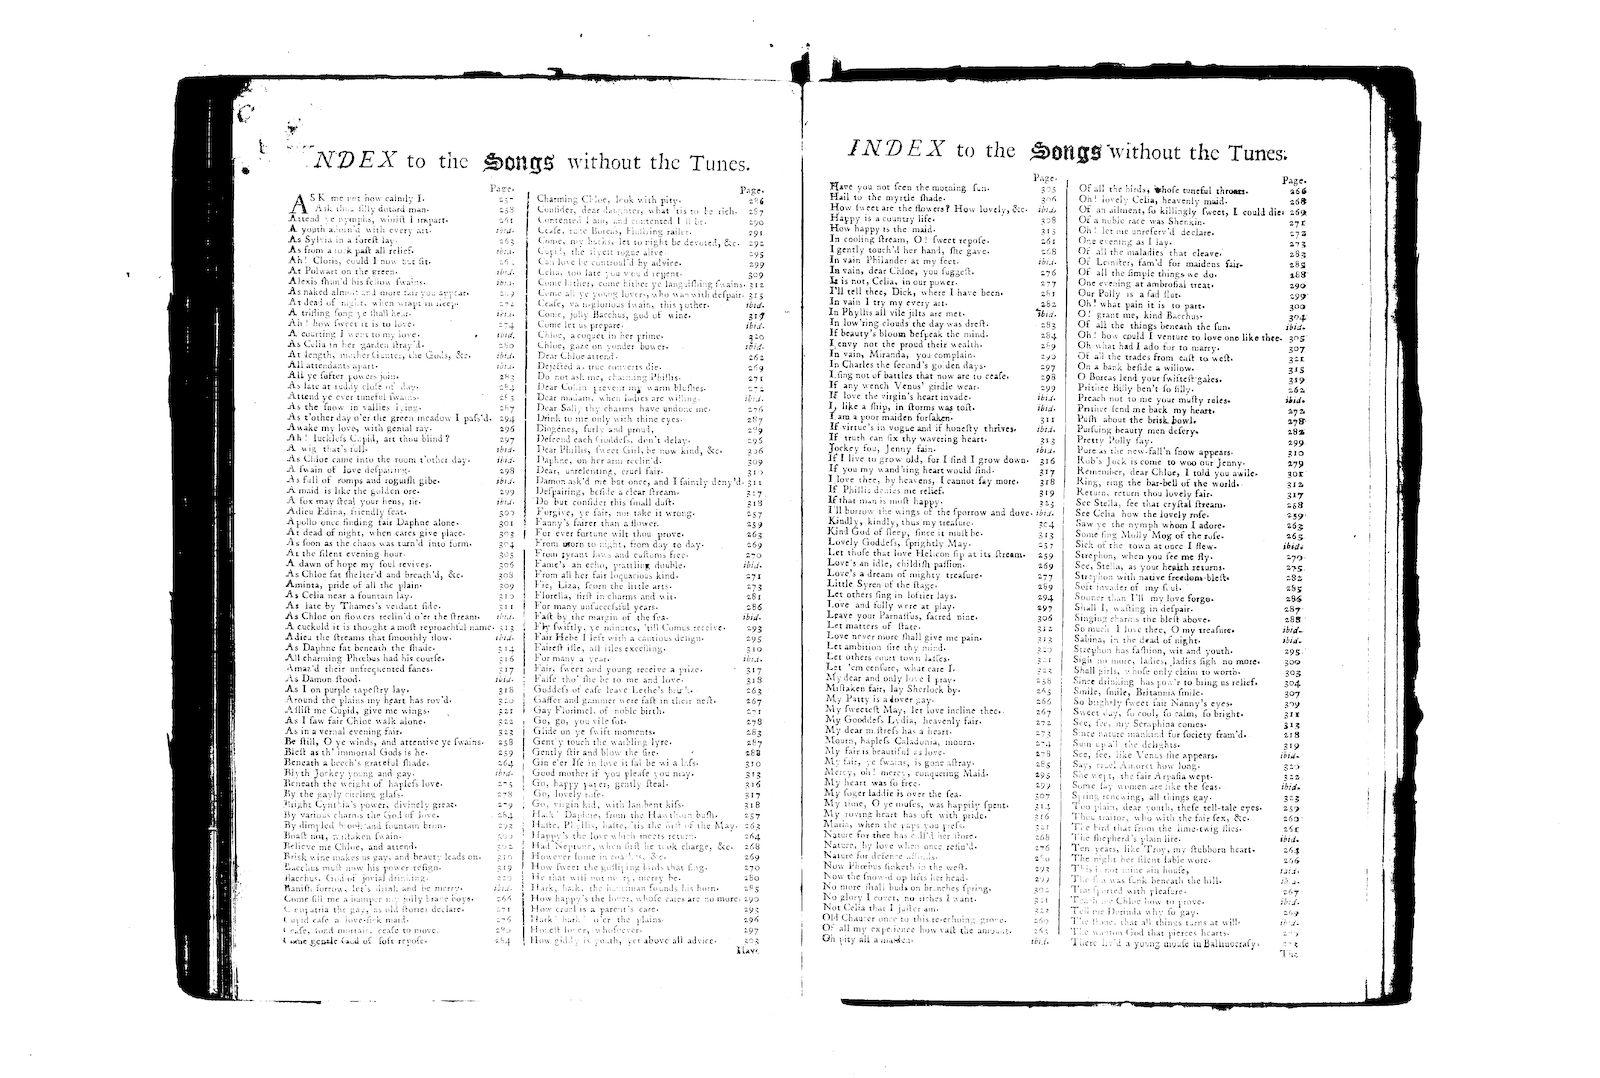 INDEX to the Songs without the Tunes.
Page.
ASK me not how calmly I. 257
Ask thou ſilly dotard man. 258
Attend ye nymphs, whilſt I impart. 261
A youth adorn'd with every art. ibid.
As Sylvia in a foreſt lay. 263
As from a rock paſt all relief. ibid.
Ah! Cloris, could I now but ſit.
At Polwart on the green. ibid.
Alexis ſhun'd his fellow ſwains. ibid.
As naked almoſt and more fair you appear. 269
At dead of night, when wrapt in ſleep. 272
A trifling ſong ye ſhall hear. ibid.
Ah! how ſweet it is to love. 274
A courting I went to my love. ibid.
As Celia in her garden ſtray'd. 280
At length, mother Gunter, the Gods, &c. ibid.
All attendants apart. ibid.
All ye ſofter powers join. 283
As late at ruddy cloſe of day. 284
Attend ye ever tuneful ſwains. 285
As the ſnow in vallies lying. 287
As t'other day o'er the green meadow I paſs'd. 294
Awake my love, with genial ray. 296
Ah! luckleſs Cupid, art thou blind? 297
A wig that's full. ibid.
As Chloe came into the room t'other day. ibid.
A ſwain of love deſpairing. 298
As full of romps and roguiſh gibe. ibid.
A maid is like the golden ore. 299
A fox may ſteal your hens, ſir. ibid.
Adieu Edina, friendly ſeat. 300
Apollo once finding fair Daphne alone. 301
At dead of night, when cares give place. 303
As ſoon as the chaos was turn'd into form. 304
At the ſilent evening hour. 305
A dawn of hope my ſoul revives. 306
As Chloe ſat ſhelter'd and breath'd, &c. 308
Aminta, pride of all the plain. 309
As Celia near a fountain lay. 310
As late by Thames's verdant ſide. 311
As Chloe on flowers reclin'd o'er the ſtream. ibid.
A cuckold it is thought a moſt reproachful name. 313
Adieu the ſtreams that ſmoothly flow. ibid.
As Daphne ſat beneath the ſhade. 314
All charming Phœbus had his courſe. 316
Amaz'd their unfrequented fanes. 317
As Damon ſtood. ibid.
As I on purple tapeſtry lay. 318
Around the plains my heart has rov'd. 320
Aſſiſt me Cupid, give me wings. 321
As I ſaw fair Chloe walk alone. 322
As in a vernal evening fair. 323
Be ſtill, O ye winds, and attentive ye ſwains. 258
Bleſt as th' immortal Gods is he. 259
Beneath a beech's grateful ſhade. 264
Blyth Jockey young and gay. ibid.
Beneath the weight of hapleſs love. 275
By the gayly circling glaſs. 278
Bright Cynthia's power, divinely great. 279
By various charms the God of love. 264
By dimpled brook and fountain brim. 293
Boaſt not, miſtaken ſwain. 300
Believe me Chloe, and attend. 302
Brisk wine makes us gay, and beauty leads on. 310
Bacchus muſt now his power reſign. 319
Bacchus, God of jovial drinking. 320
Baniſh ſorrow, let's drink and be merry. ibid.
Come fill me a bumper my jolly brave boys. 266
Cleopatria the gay, as old ſtories declare. 271
Cupid caſe a love-ſick maid. 276
Ceaſe, fond mortals, ceaſe to move. 280
Come gentle God of ſoft repoſe. 284
Page.
Charming Chloe, look with pity. 286
Conſider, dear daughter, what 'tis to be rich. 287
Contented I am, and contented I'll be. 290
Ceaſe, rude Boreas, bluſtring railer. 291
Come, my bucks, let to night be devoted, &c. 292
Cupid, the ſlyeſt rogue alive 295
Can love be controul'd by advice. 299
Celia, too late you wou'd repent. 309
Come hither, come hither ye languiſhing ſwains. 312
Come all ye young lovers, who wan with deſpair. 315
Ceaſe, vain glorious ſwain, this pother. ibid.
Come, jolly Bacchus, god of wine. 317
Come let us prepare. ibid.
Chloe, a coquet in her prime. 320
Chloe, gaze on yonder bower. ibid.
Dear Chloe attend. 262
Dejected as true converts die. 269
Do not ask me, charming Phillis. 271
Dear Colin prevent my warm bluſhes. 272
Dear madam, when ladies are willing. ibid.
Dear Sally thy charms have undone me. 276
Drink to me only with thine eyes. 287
Diogenes, ſurly and proud, 289
Deſcend each Goddeſs, don't delay. 296
Dear Phillis, ſweet Girl, be now kind, &c. 306
Daphne, on her arm reclin'd. 309
Dear, unrelenting, cruel fair. 310
Damon ask'd me but once, and I faintly deny'd. 311
Deſpairing, beſide a clear ſtream. 317
Do but conſider this ſmall duſt. 318
Forgive, ye fair, nor take it wrong. 257
Fanny's fairer than a flower. 259
For ever fortune wilt thou prove. 263
From morn to night, from day to day. 269
From tyrant laws and cuſtoms free. 270
Fame's an echo, prattling double. ibid.
From all her fair loquacious kind. 271
Fie, Liza, ſcorn the little arts. 273
Florella, firſt in charms and wit. 281
For many unſucceſsful years. 286
Faſt by the margin of the ſea. ibid.
Fly ſwiftly, ye minutes, 'till Comus receive. 293
Fair Hebe I left with a cautious deſign. 295
Faireſt iſle, all iſles excelling. 310
For many a year. ibid.
Fair, ſweet and young receive a prize. 317
Falſe tho' ſhe be to me and love. 318
Goddeſs of eaſe leave Lethe's brink. 263
Gaffer and gammer were faſt in their neſt. 267
Gay Florimel, of noble birth. 271
Go, go, you vile ſot. 278
Glide on ye ſwift moments. 283
Gent'y touch the warbling lyre. 287
Gently ſtir and blow the fire. 288
Gin e'er Iſe in love it ſal be wi a laſs. 310
Good mother if you pleaſe you may. 313
Go, happy paper, gently ſteal. 316
Go, lovely roſe. 317
Go, virgin kid, with lambent kiſs. 318
Hark! Daphne, from the Hawthorn buſh. 257
Haſte, Phyllis, haſte, 'tis the firſt of the May. 263
Happy's the love which meets return. 264
Had Neptune, when firſt he took charge, &c. 268
However ſome in coaches, &c. 269
How ſweet the goſſiping birds that ſing. 270
He that will not merry, merry be. 280
Hark, hark, the huntſman ſounds his horn. 285
How happy's the lover, whoſe cares are no more. 290
How cruel is a parent's care. 292
Hark! hark! o'er the plains. 296
Honeſt lover, whoſoever. 297
How giddy is youth, yet above all advice. 303
Have
INDEX to the Songs without the Tunes.
Page.
Have you not ſeen the morning ſun. 305
Hail to the myrtle ſhade. 306
How ſweet are the flowers? How lovely, &c. ibid.
Happy is a country life. 308
How happy is the maid. 315
In cooling ſtream, O! ſweet repoſe. 261
I gently touch'd her hand, ſhe gave. 268
In vain Philander at my feet. ibid.
In vain, dear Chloe, you ſuggeſt. 276
It is not, Celia, in our power. 277
I'll tell thee, Dick, where I have been. 281
In vain I try my every art. 282
In Phyllis all vile jilts are met. ibid.
In low'ring clouds the day was dreſt. 283
If beauty's bloom beſpeak the mind. 284
I envy not the proud their wealth. 289
In vain, Miranda, you complain. 290
In Charles the ſecond's golden days. 297
I ſing not of battles that now are to ceaſe. 298
If any wench Venus' girdle wear. 299
If love the virgin's heart invade. ibid.
I, like a ſhip, in ſtorms was toſt. ibid.
I am a poor maiden forſaken. 311
If virtue's in vogue and if honeſty thrives. ibid.
If truth can fix thy wavering heart. 313
Jockey fou, Jenny fain. ibid.
If I live to grow old, for I find I grow down. 316
If you my wand'ring heart would find. 317
I love thee, by heavens, I cannot ſay more. 318
If Phillis denies me relief. 319
If that man is moſt happy. 323
I'll borrow the wings of the ſparrow and dove. ibid.
Kindly, kindly, thus my treaſure. 304
Kind God of ſleep, ſince it muſt be. 313
Lovely Goddeſs, ſprightly May. 257
Let thoſe that love Helicon ſip at its ſtream. 259
Love's an idle, childiſh paſſion. 269
Love's a dream of mighty treaſure. 277
Little Syren of the ſtage. 289
Let others ſing in loftier lays. 294
Love and folly were at play. 297
Leave your Parnaſſus, ſacred nine. 306
Let matters of ſtate. 312
Love never more ſhall give me pain. 313
Let ambition fire thy mind. 320
Let others court town laſſes. 321
Let 'em cenſure, what care I. 323
My dear and only love I pray. 258
Miſtaken fair, lay Sherlock by. 265
My Patty is a lover gay. 266
My ſweeteſt May, let love incline thee. 267
My Goddeſs Lydia, heavenly fair. 272
My dear miſtreſs has a heart. 273
Mourn, hapleſs Caladonia, mourn. 274
My fair is beautiful as love. 278
My fair, ye ſwains, is gone aſtray. 285
Mercy, oh! mercy, conquering Maid. 295
My heart was ſo free. 299
My ſoger laddie is over the ſea. 307
My time, O ye muſes, was happily ſpent. 314
My roving heart has oft with pride. 316
Maria, when the cups you preſs. 321
Nature for thee has cull'd her ſtore. 268
Nature, by love when once refin'd. 276
Nature for defence affords. 280
Now Phœbus ſinketh in the weſt. 292
Now the ſnow-drop lifts her head. 299
No more ſhall buds on branches ſpring. 302
No glory I covet, no riches I want. 321
Not Celia that I juſter am. 322
Old Chaucer once to this re-echoing grove. 260
Of all my experience how vaſt the amount. 262
Oh pity all a maiden ibid.
Page.
Of all the birds, whoſe tuneful throats. 266
Oh! lovely Celia, heavenly maid. 268
Of an ailment, ſo killingly ſweet, I could die. 269
Of a noble race was Shenkin. 271
Oh! let me unreſerv'd declare. 272
One evening as I lay. 273
Of all the maladies that cleave. 283
Of Leniſter, fam'd for maidens fair. 285
Of all the ſimple things we do. 288
One evening at ambroſial treat. 290
Our Polly is a ſad ſlut. 299
Oh! what pain it is to part. 300
O! grant me, kind Bacchus. 304
Of all the things beneath the ſun. ibid.
Oh! how could I venture to love one like thee. 305
Oh what had I ado for to marry. 307
Of all the trades from eaſt to weſt. 321
On a bank beſide a willow. 315
O Boreas lend your ſwifteſt gales. 319
Prithee Billy ben't ſo ſilly. 262
Preach not to me your muſty rules. ibid.
Prithee ſend me back my heart. 272
Puſh about the brisk bowl. 278
Purſuing beauty men deſcry. 282
Pretty Polly ſay. 299
Pure as the new-fall'n ſnow appears. 310
Rob's Jock is come to woo our Jenny. 279
Remember, dear Chloe, I told you awile. 301
Ring, ring the bar-bell of the world. 312
Return, return thou lovely fair. 317
See Stella, ſee that cryſtal ſtream. 258
See Celia how the lovely roſe. 259
Saw ye the nymph whom I adore. 263
Some ſing Molly Mog of the roſe. 265
Sick of the town at once I flew. ibid.
Strephon, when you ſee me fly. 270
See, Stella, as your health returns. 275
Strephon with native freedom bleſt. 282
Soft invader of my ſoul. 285
Sooner than I'll my love forgo. 286
Shall I, waſting in deſpair. 287
Singing charms the bleſt above. 288
So much I love thee, O my treaſure. ibid.
Sabina, in the dead of night. ibid.
Strephon has faſhion, wit and youth. 295
Sigh no more, ladies, ladies ſigh no more. 300
Shall girls, whoſe only claim to worth. 303
Since drinking has pow'r to bring us relief. 304
Smile, ſmile, Britannia ſmile. 307
So brightly ſweet fair Nanny's eyes. 309
Sweet day, ſo cool, ſo calm, ſo bright. 311
See, ſee, my Seraphina comes. 313
Since nature mankind for ſociety fram'd. 218
Sum up all the delights. 319
See, ſee, like Venus ſhe appears. ibid.
Say, cruel Amoret how long. 320
She wept, the fair Arpaſia wept. 322
Some ſay women are like the ſeas. ibid.
Spring renewing, all things gay. 323
Too plain, dear youth, theſe tell-tale eyes. 259
Thou traitor, who with the fair ſex, &c. 260
The bird that from the lime-twig flies. 261
The ſhepherd's plain life. ibid.
Ten years, like Troy, my ſtubborn heart. 264
The night her ſilent ſable wore. 266
This is not mine ain houſe, ibid.
The ſun was ſunk beneath the hill. ibid.
Tranſported with pleaſure. 267
Teach me Chloe how to prove. ibid.
Tell me Dorinda why ſo gay. 269
The ſtone, that all things turns at will. ibid.
The wanton God that pierces hearts. 270
There liv'd a young mouſe in Ballinocraſy. 273
The